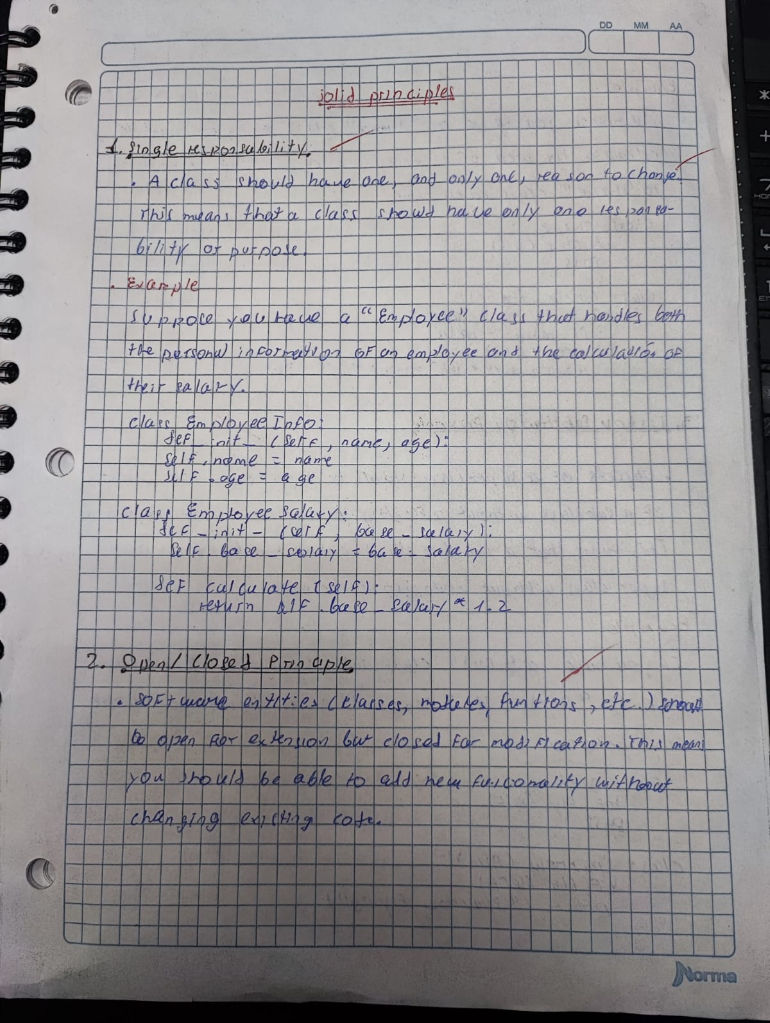 DD MM AA
solid principles
1. Single responsability.
. A class should have one, and only one, reason to change.
This means that a class should have only one responsa-
bility or purpose.
. Example
Suppose you have a "Employee" class that handles both
the personal information of an employee and the calculation of
their salary.
class Employee Info:
def _init_ (self, name, age):
self.name = name
self.age = age
class Employee salary:
def _init_ (self, base_salary):
self.base_salary = base_salary
def calculate (self):
return self.base_salary * 1.2
2. Open/Closed Principle
. Software entities (classes, modules, functions, etc.) should
be open for extension but closed for modification. This means
you should be able to add new funcionality without
changing existing code.
Norma